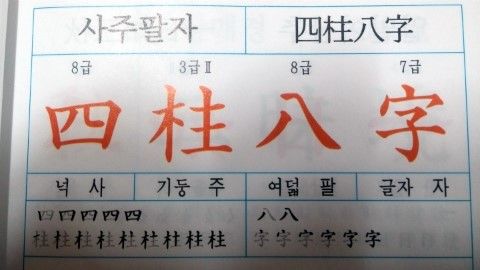 사주팔자 四柱八字
8급 3급Ⅱ 8급 7급
四 柱 八 字
넉 사 기둥 주 여덟 팔 글자 자
四 四 四 四 四 八 八
柱 柱 柱 柱 柱 柱 柱 柱 柱 字 字 字 字 字 字